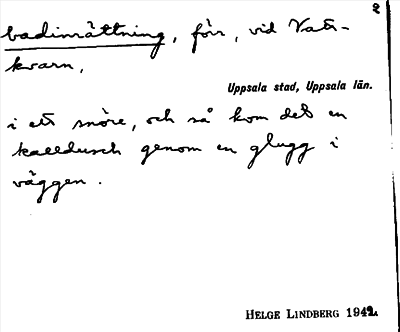 2
badinrättning, förr, vid Vatt-
kvarn,
Uppsala stad, Uppsala län.
i ett snöre, och så kom det en
kalldusch genom en glugg i
väggen.
HELGE LINDBERG 1942.